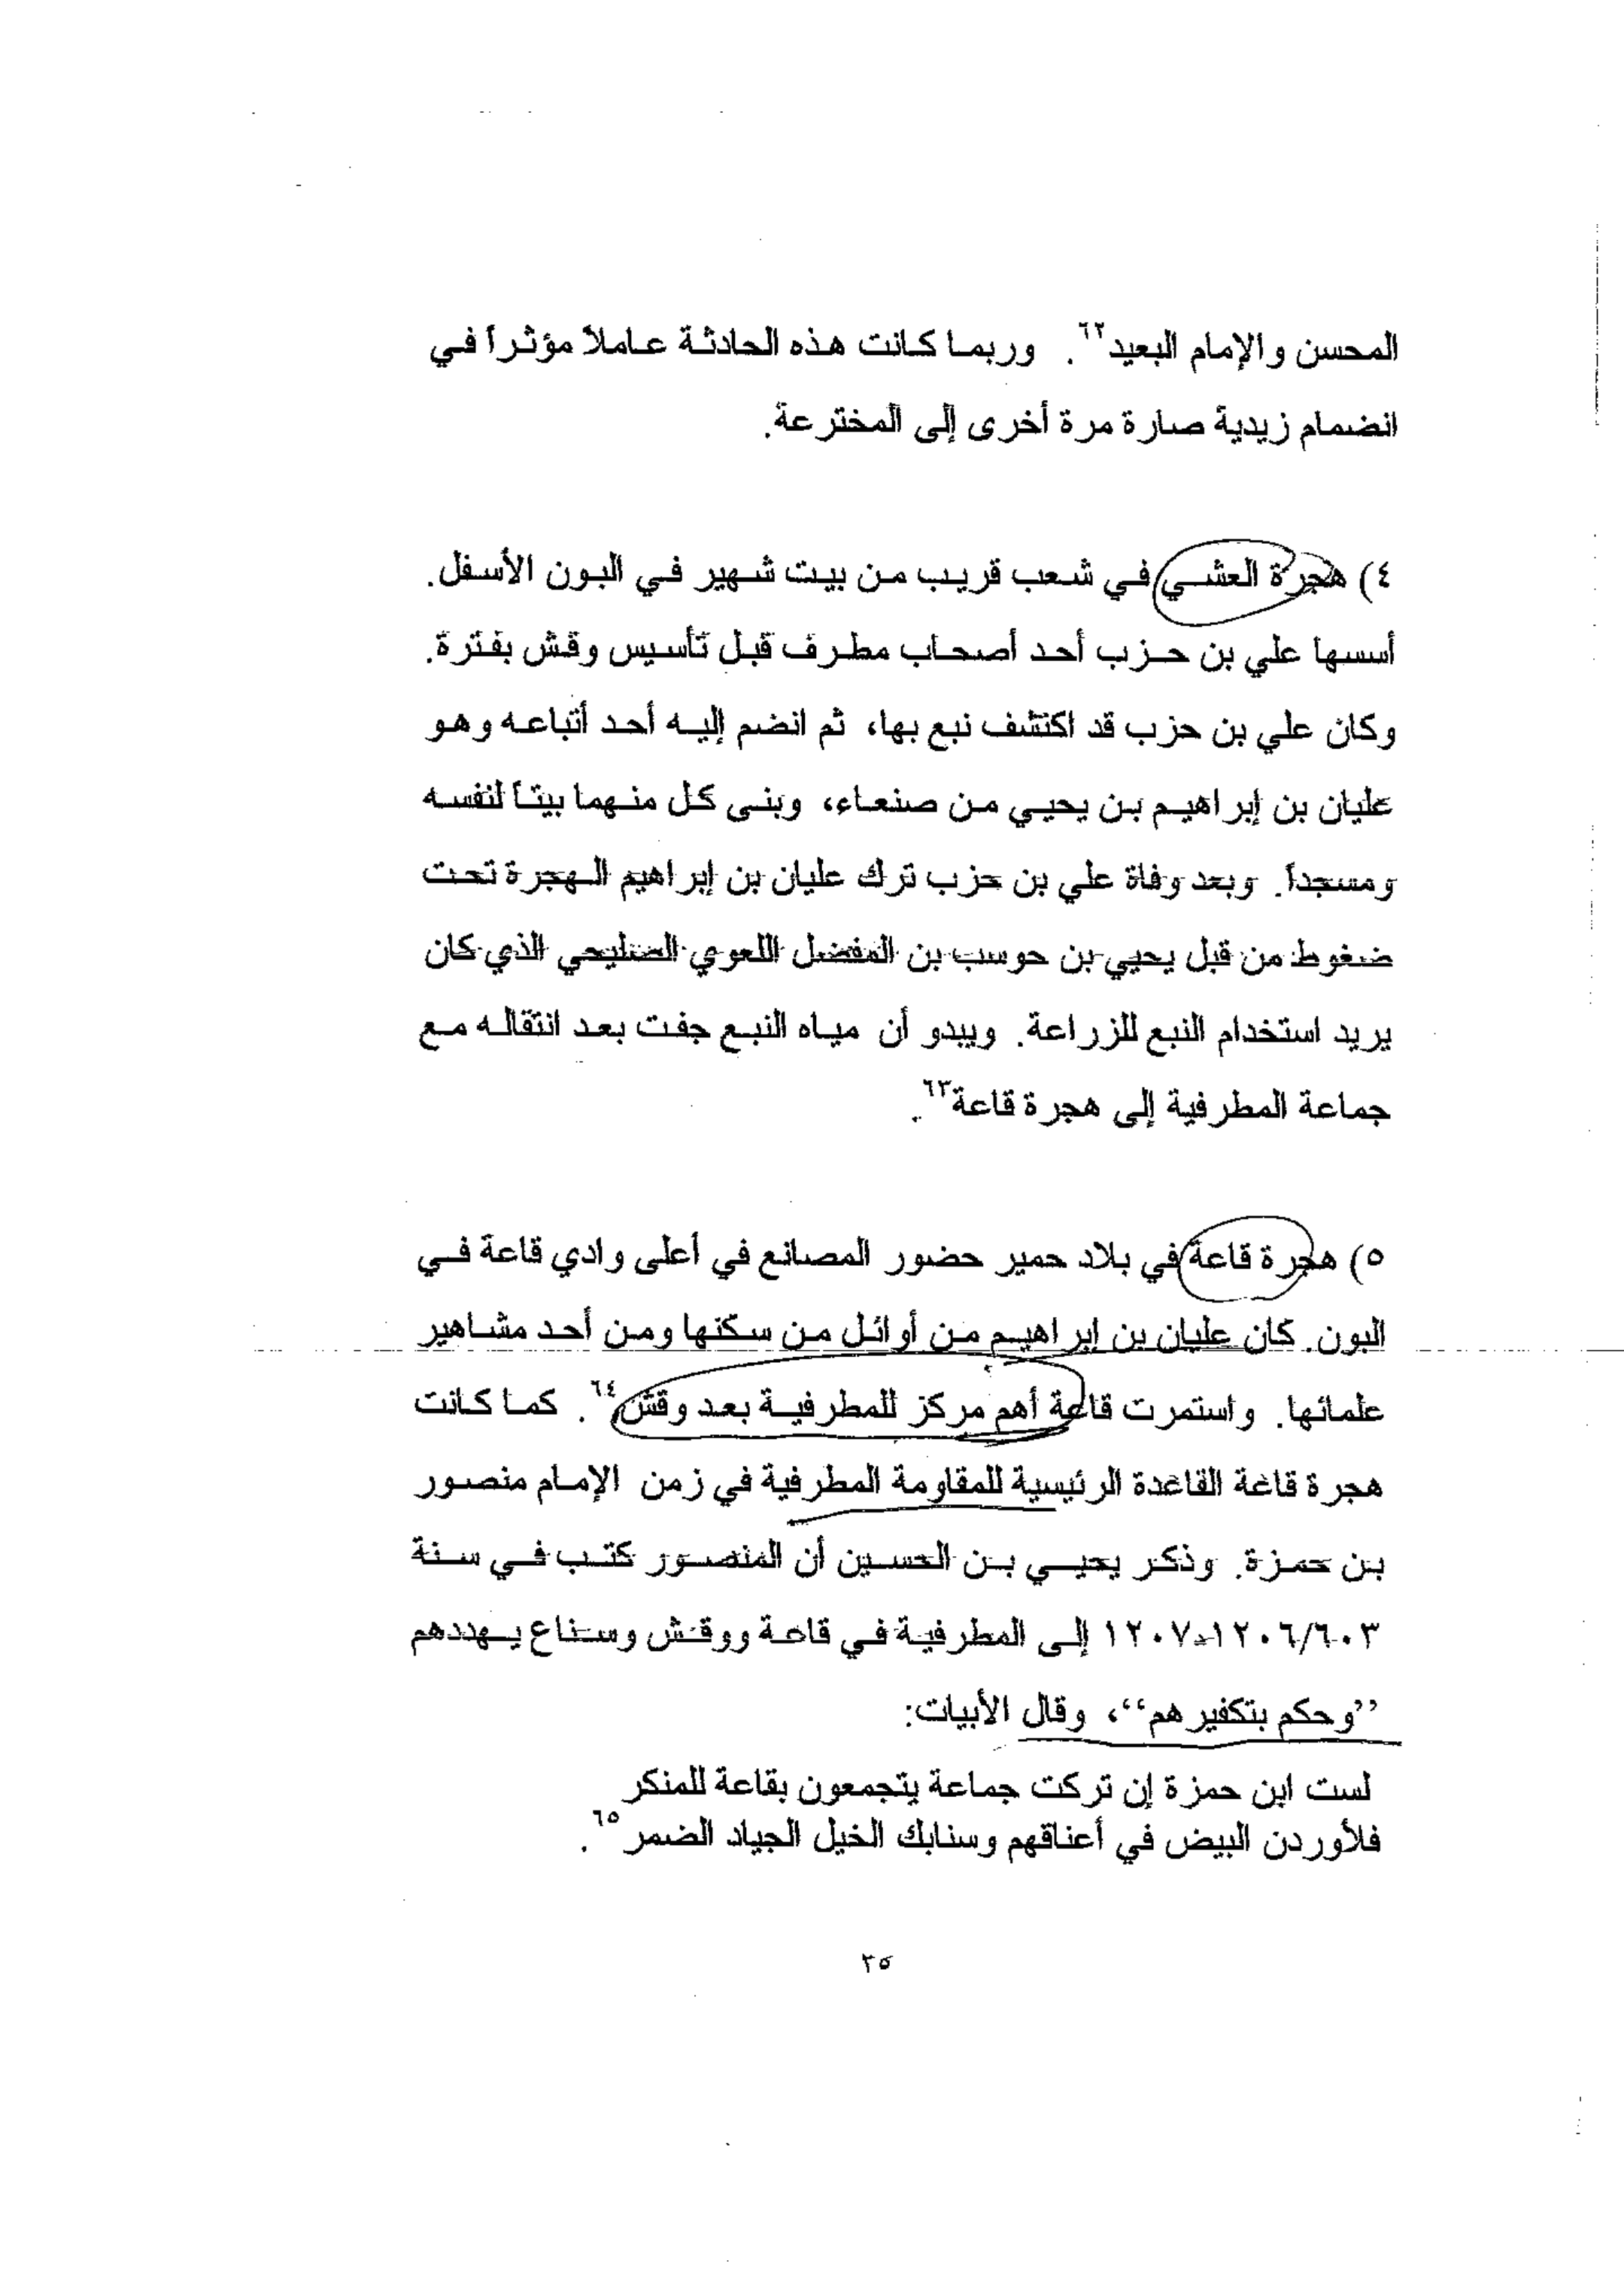 المحسن والإمام البعيد٦٢. وربما كانت هذه الحادثة عاملاً مؤثراً في
انضمام زيدية صارة مرة أخرى إلى المخترعة.
٤) هجرة العشي في شعب قريب من بيت شهير في البون الأسفل.
أسسها علي بن حزب أحد أصحاب مطرف قبل تأسيس وقش بفترة.
وكان علي بن حزب قد اكتشف نبع بها، ثم انضم إليه أحد أتباعه وهو
عليان بن إبراهيم بن يحيي من صنعاء، وبنى كل منهما بيتاً لنفسه
ومسجداً. وبعد وفاة علي بن حزب ترك عليان بن إبراهيم الهجرة تحت
ضغوط من قبل يحيي بن حوسب بن المفضل اللعوي الصليحي الذي كان
يريد استخدام النبع للزراعة. ويبدو أن مياه النبع جفت بعد انتقاله مع
جماعة المطرفية إلى هجرة قاعة٦٣.
٥) هجرة قاعة في بلاد حمير حضور المصانع في أعلى وادي قاعة في
البون. كان عليان بن إبراهيم من أوائل من سكنها ومن أحد مشاهير
علمائها. واستمرت قاعة أهم مركز للمطرفية بعد وقش٦٤. كما كانت
هجرة قاعة القاعدة الرئيسية للمقاومة المطرفية في زمن الإمام منصور
بن حمزة. وذكر يحيي بن الحسين أن المنصور كتب في سنة
٦٠٣/١٢٠٦-١٢٠٧ إلى المطرفية في قاعة ووقش وسناع يهددهم
”وحكم بتكفيرهم“، وقال الأبيات:
لست ابن حمزة إن تركت جماعة يتجمعون بقاعة للمنكر
فلأوردن البيض في أعناقهم وسنابك الخيل الجياد الضمر٦٥.
٢٥